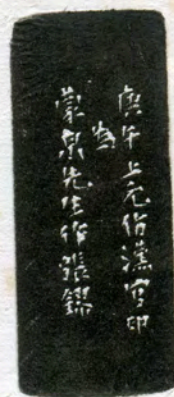 庚午上元仿漢官印
為
蒙泉先生作張鏐